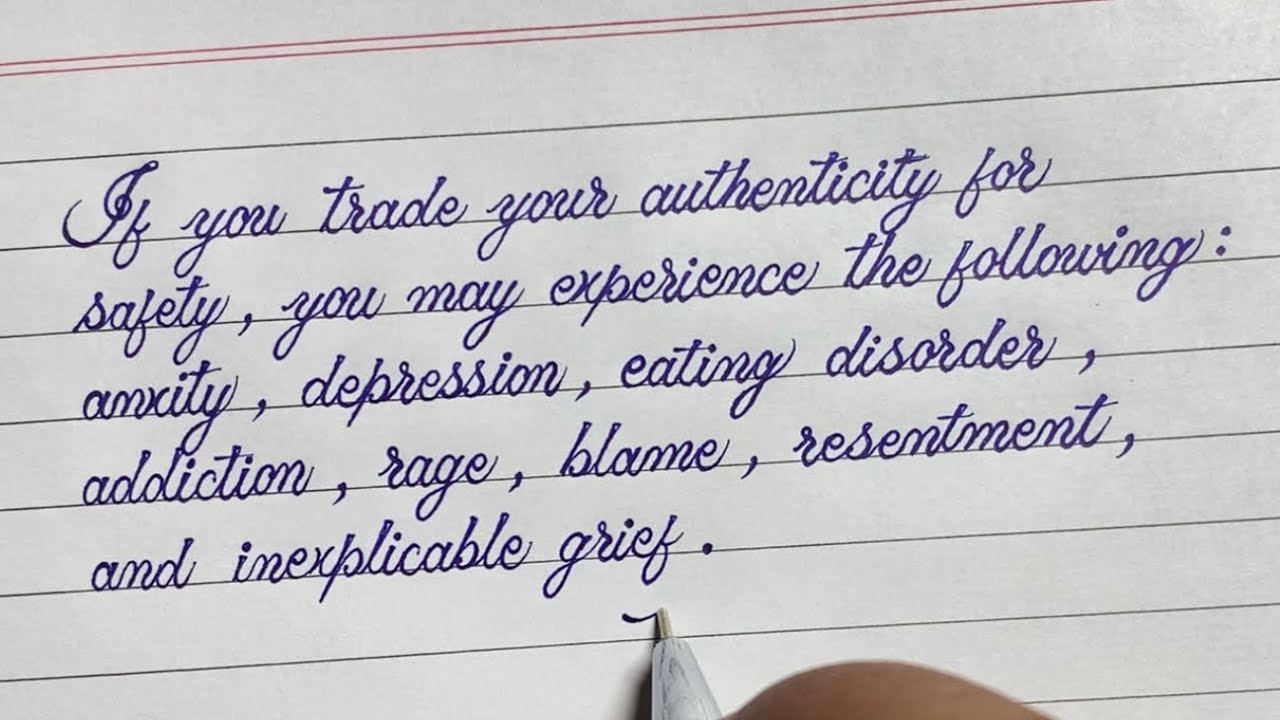 If you trade your authenticity for
safety, you may experience the following:
anxity, depression, eating disorder,
addiction, rage, blame, resentment,
and inexplicable grief.